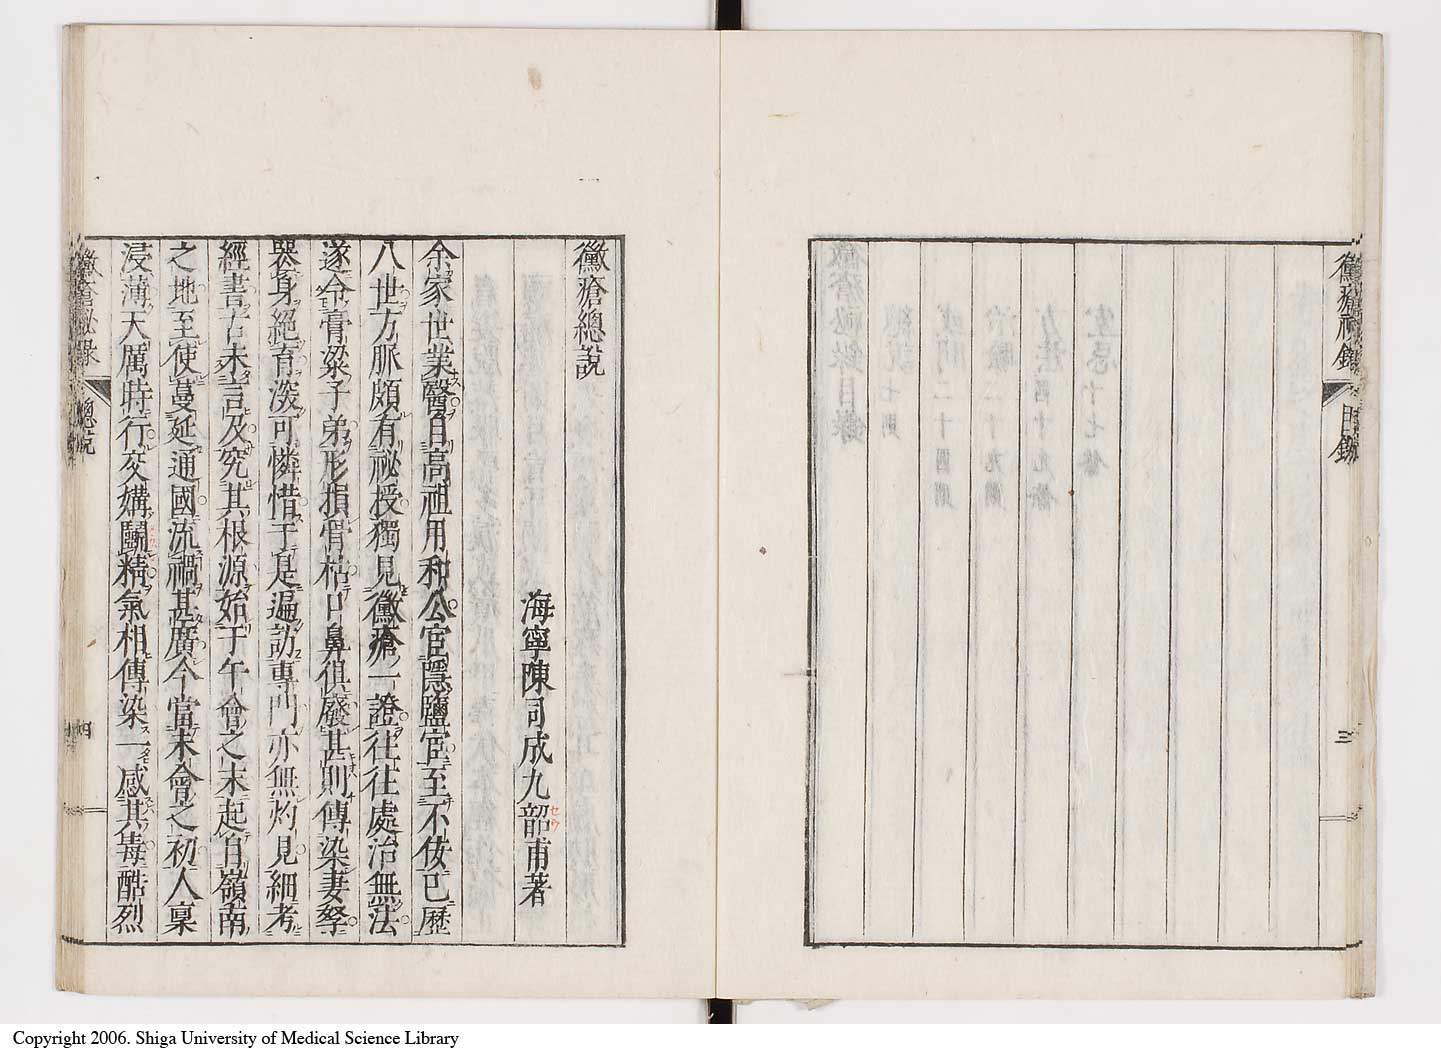 黴瘡祕錄
目錄
三
黴瘡總說
海寧陳司成九韶甫著
余家世業醫自高祖用和公官隱鹽官至不佞已歷
八世方脈頗有祕授獨見黴瘡一證往往處治無法
遂令膏粱子弟形損骨枯口鼻俱廢甚則傳染妻孥
喪身絕育深可憐惜于是遍訪專門亦無灼見細考
經書古未言及究其根源始于午會之末起自嶺南
之地至使蔓延通國流禍甚廣今當未會之初人稟
浸薄天厲時行交媾鬪精氣相傳染一感其毒酷烈
黴瘡祕錄
總說
四
Copyright 2006. Shiga University of Medical Science Library